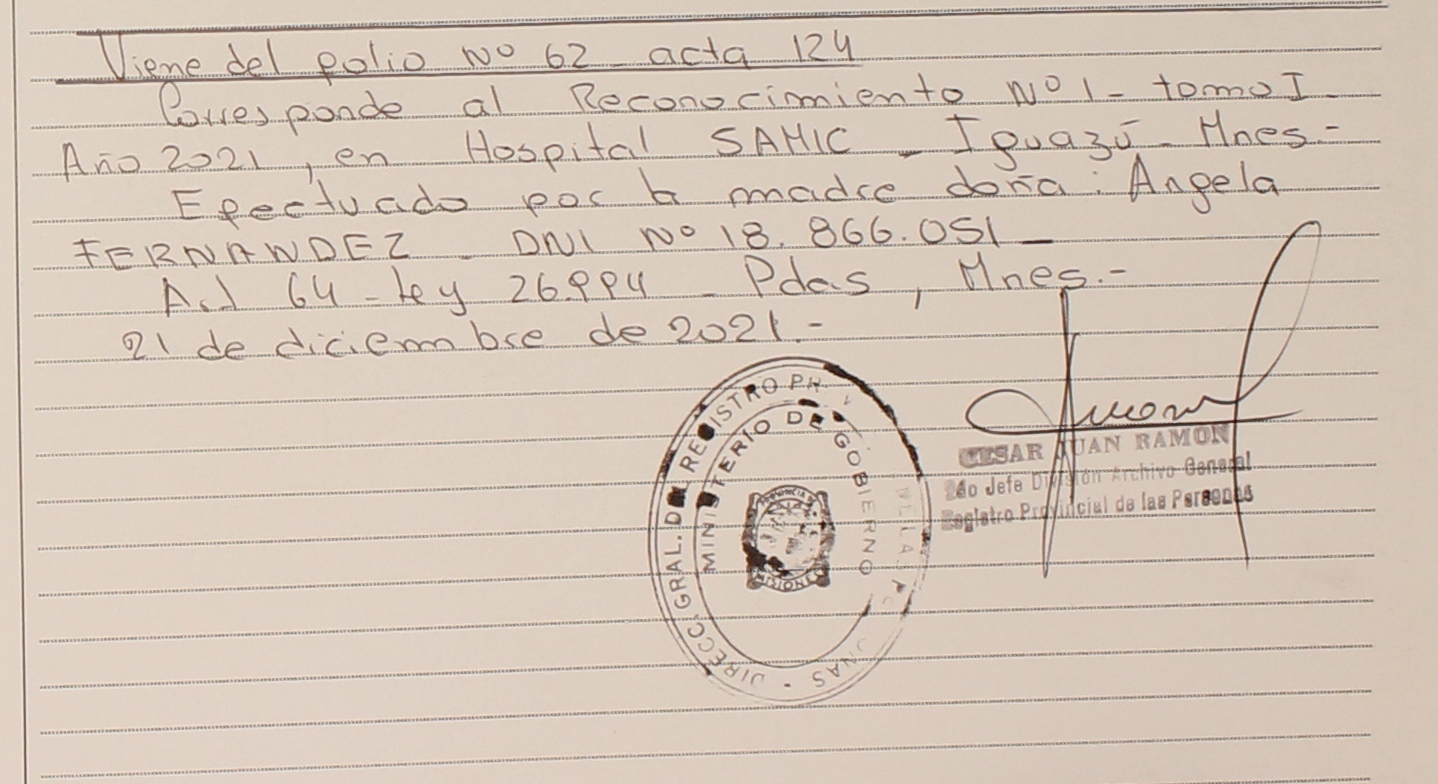 Viene del folio Nº 62 - acta 124
Corresponde al Reconocimiento Nº 1 - tomo I -
Año 2021, en Hospital SAMIC - Iguazú - Mnes.-
Efectuado por la madre doña: Angela
FERNANDEZ - DNI Nº 18.866.051 -
Art 64 - Ley 26994 - Pdas, Mnes.-
21 de diciembre de 2021.-
DIRECC. GRAL. DEL REGISTRO PR
DE LAS PERSONAS
MINISTERIO DE GOBIERNO
PROVINCIA DE
MISIONES
CESAR JUAN RAMON
2do Jefe División Archivo General
Registro Provincial de las Personas